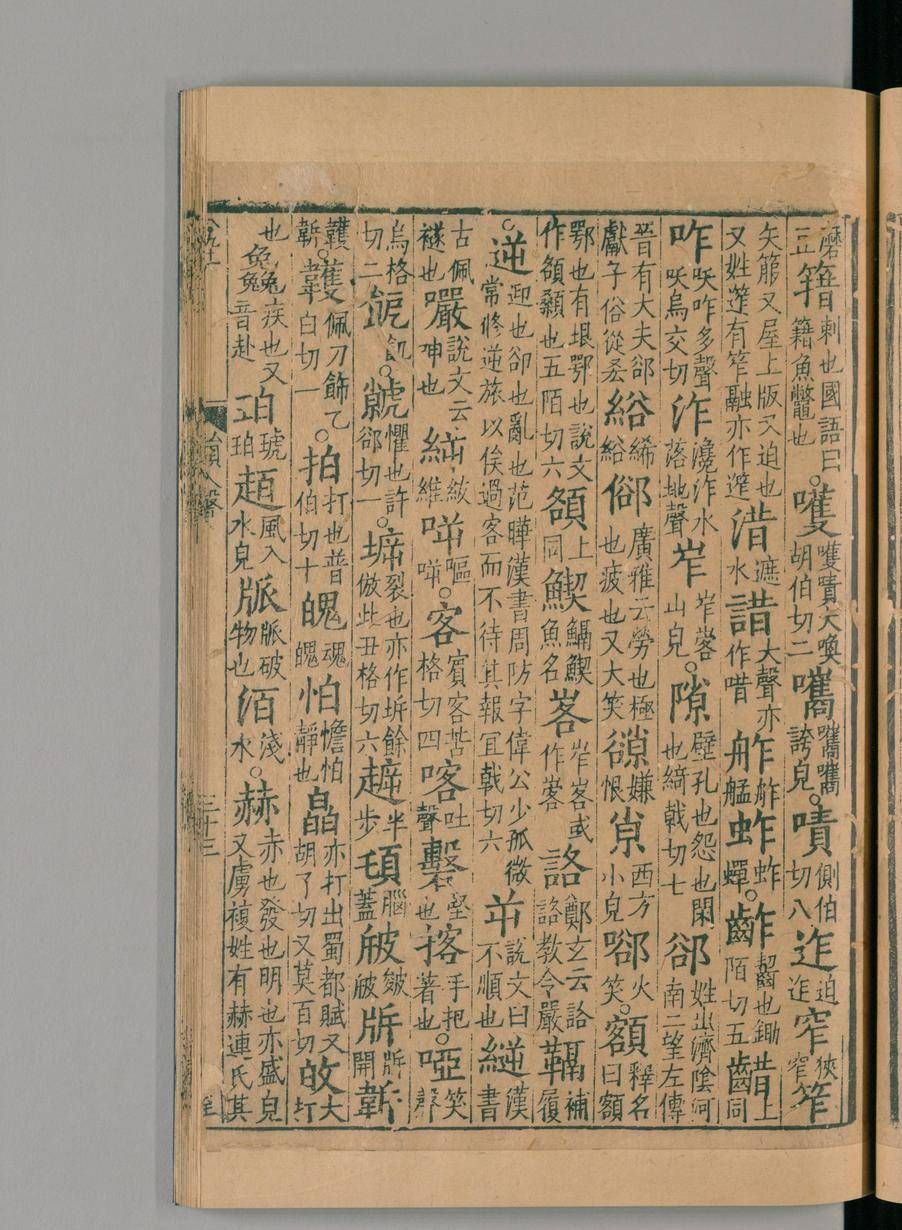 磨簎刺也國語曰簎魚鱉也○嚄嚄嘖大喚胡伯切二嚿嚿嚿誇皃○嘖側伯切八迮迫迮窄狹窄笮
矢箙又屋上版又迫也又姓笮有笮融亦作迮遮水諎大聲亦作唶舴舴艋蚱蚱蟬○齚齧也鋤陌切五齰上同
咋多聲烏交切泎瀺泎水落地聲岝岝㟯山皃○隙壁孔也怨也閑也綺戟切七郤姓出濟陰河南二望左傳
晉有大夫郤獻子俗從丢綌絺綌廣雅云勞也極也疲也又大笑嫌恨西方小皃火笑○額釋名曰額
鄂也有垠鄂也說文作頟顙也五陌切六頟上同魚名峉岝峉或作㟯詻鄭玄云詻詻教令嚴補履
○逆迎也卻也亂也范曄漢書周防字偉公少孤微常修逆旅以俟過客而不待其報冝戟切六屰說文曰不順也縌漢書
古佩襚也說文云呻也嘔○客賓客苦格切四喀吐聲堅也手把著也○啞笑聲
烏格切二飢○虩懼也許郤切一裂也亦作坼餘倣此丑格切六半步腦蓋皴開
韄佩刀飾乙白切一○拍打也普伯切十魄魂魄怕憺怕靜也皛亦打出蜀都賦又胡了切又莫百切大打
也疾也又音赴珀琥珀風入水皃破物也洦淺水○赫赤也發也明也亦盛皃又虜複姓有赫連氏其
韻入聲 三十三